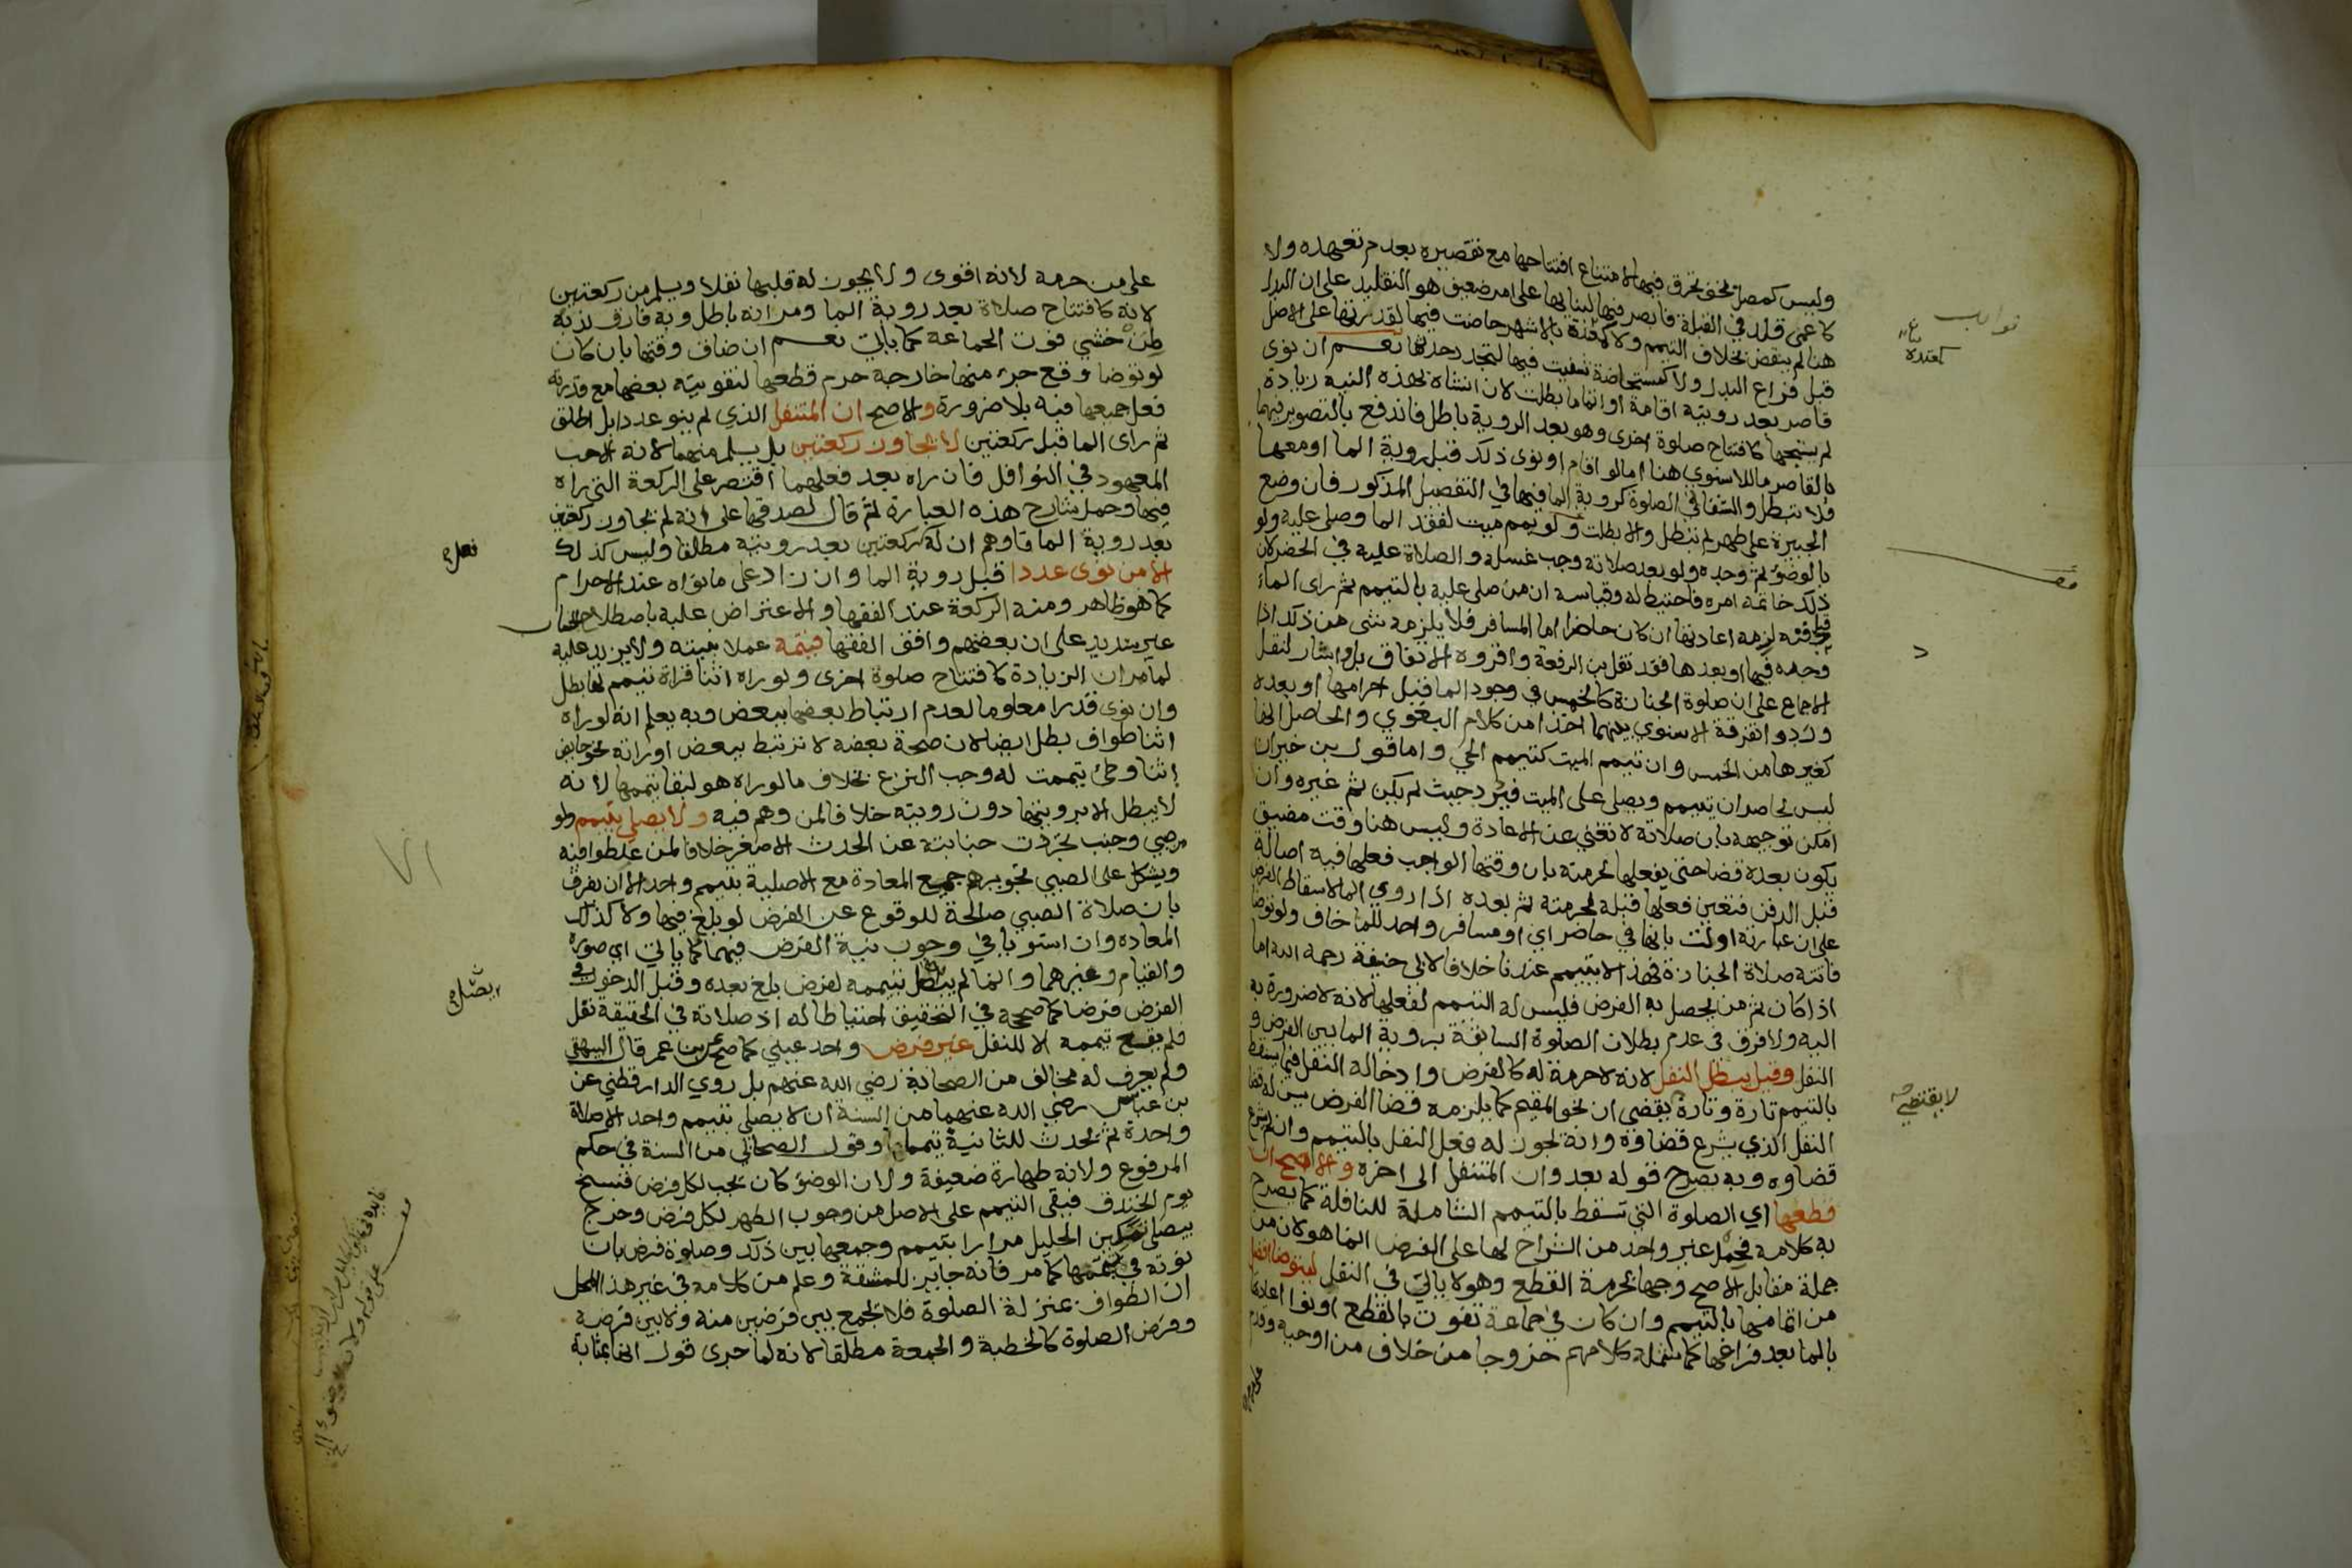 وليس كمصل بخف تخرق فيها لامتناع افتتاحها مع تقصيره بعدم تعهده ولا
كاعمى قلد في القبلة فابصر فيها لبنايها على امر ضعيف هو التقليد على ان البدل
هنا لم ينقض بخلاف التيمم ولا كمعتدة بالاشهر حاضت فيها لقدرتها على الاصل
قبل فراغ البدل ولا كمستحاضة شفيت فيها لتجدد حدثها نعم ان نوى
قاصر بعد رويته اقامة او اتماما بطلت لان انشاه بهذه النية زيادة
لم يستبحها كافتتاح صلوة اخرى وهو بعد الروية باطل فاندفع بالتصوير فيها
بالقاصر ما للاسنوي هنا امالو اقام او نوى ذلك قبل روية الما اومعها
فلا تبطل والشفا في الصلوة كروية الما فيها في التفصيل المذكور فان وضع
الجبيرة على طهر لم تبطل والا بطلت ولو يمم ميت لفقد الما وصلي عليه ولو
بالوضؤ ثم وجده ولو بعد صلاته وجب غسله والصلاة عليه في الحضر لان
ذلك خاتمة امره فاحتيط له وقياسه ان من صلى عليه بالتيمم ثم راى الماء
قبل دفنه لزمه اعادتها ان كان حاضرا اما المسافر فلا يلزمه شى من ذلك اذا
وجده فيها او بعدها فقد نقل بن الرفعة واقروه الاتفاق بل واشار لنقل
الاجماع على ان صلوة الجنازة كالخمس في وجود الما قبل احرامها او بعده
وردوا تفرقة الاسنوي بينهما اخذا من كلام البغوي والحاصل انها
كغيرها من الخمس وان تيمم الميت كتيمم الحي واما قول بن خيران
ليس لحاضر ان يتيمم ويصلي على الميت فيرد حيث لم يكن ثم غيره وان
امكن توجيهه بان صلاته لا تغني عن الاعادة وليس هنا وقت مضيق
يكون بعده قضا حتى يفعلها لحرمته بان وقتها الواجب فعلها فيه اصالة
قبل الدفن فتعين فعلها قبله لحرمته ثم بعده اذا روي الما لاسقاط الفرض
على ان عبارته اولت بانها في حاضر اي او مسافر واجد للما خاف ولو توضا
فاتته صلاة الجنازة فهذا لا يتيمم عندنا خلافا لابي حنيفة رحمه الله اما
اذا كان ثم من يحصل به الفرض فليس له التيمم لفعلها لانه لا ضرورة به
اليه ولا فرق في عدم بطلان الصلوة السابقة بروية الما بين الفرض و
النفل وقيل يبطل النفل لانه لا حرمة له كالفرض وادخاله النفل فيما يسقط
بالتيمم تارة وتارة يقضى ان نحو المقيم كما يلزمه قضا الفرض يسن له قضا
النفل الذي يشرع قضاوه وانه يجوز له فعل النفل بالتيمم وان لم يشرع
قضاوه وبه يصرح قوله بعد وان المتنفل الى اخره والاصح ان
قطعها اي الصلوة التي تسقط بالتيمم الشاملة للنافلة كما يصرح
به كلامه فحمل غير واحد من الشراح لها على الفرض انما هو لان من
جملة مقابل الاصح وجها بحرمة القطع وهو لا ياتي في النفل ليتوضا افضل
من اتمامها بالتيمم وان كان في جماعة تفوت بالقطع اونوا اعادتها
بالما بعد فراغها كما يشمله كلامهم خروجا من خلاف من اوجبه وقدم
على من حرمه لانه اقوى ولا يجوز له قلبها نفلا ويسلم من ركعتين
لانه كافتتاح صلاة بعد روية الما ومر انه باطل وبه فارق ندبه
لمن خشي فوت الجماعة كما ياتي نعم ان ضاق وقتها بان كان
لو توضا وقع جزء منها خارجه حرم قطعها لتفويته بعضها مع قدرته
فعل جميعها فيه بلا ضرورة والاصح ان المتنفل الذي لم ينو عددا بل اطلق
ثم راى الما قبل ركعتين لا يجاوز ركعتين بل يسلم منهما لانه الاحب
المعهود في النوافل فان راه بعد فعلهما اقتصر على الركعة التي راه
فيها وحمل شارح هذه العبارة ثم قال لصدقها على انه لم يجاوز ركعتين
بعد روية الما فاوهم ان له ركعتين بعد رويته مطلقا وليس كذلك
الا من نوى عددا قبل روية الما وان زاد على ما نواه عند الاحرام
كما هو ظاهر ومنه الركعة عند الفقها والاعتراض عليه باصطلاح الحساب
غير سديد على ان بعضهم وافق الفقها فيتمه عملا بنيته ولا يزيد عليه
لما مر ان الزيادة كافتتاح صلوة اخرى ولو راه اثنا قراة تيمم لها بطل
وان نوى قدرا معلوما لعدم ارتباط بعضها ببعض وبه يعلم انه لو راه
اثنا طواف بطل ايضا لان صحة بعضه لا ترتبط ببعض او راته نحو حايض
اثنا وطئ تيممت له وجب النزع بخلاف ما لو راه هو لبقا تيممها لانه
لا يبطل الا برويتها دون رويته خلافا لمن وهم فيه ولا يصلي بتيمم ولو
من صبي وجنب تجردت جنابته عن الحدث الاصغر خلافا لمن غلطوا فيه
ويشكل على الصبي تجويزهم جمع المعادة مع الاصلية بتيمم واحد الا ان يفرق
بان صلاة الصبي صالحة للوقوع عن الفرض لو بلغ فيها ولا كذلك
المعاده وان استويا في وجوب نية الفرض فيهما كما ياتي اي صورة
والقيام وغيرهما وانما لم يبطل تيممه لفرض بلغ بعده وقبل الدخول في
الفرض فرضا كما صححه في التحقيق احتياطا له اذ صلاته في الحقيقة نفل
فلم يقع تيممه الا للنفل غير فرض واحد عيني كما صح عن بن عمر قال البيهقي
ولم يعرف له مخالف من الصحابة رضي الله عنهم بل روي الدارقطني عن
بن عباس رضي الله عنهما من السنة ان لا يصلي بتيمم واحد الا صلاة
واحدة ثم يحدث للثانية تيمما وقول الصحابي من السنة في حكم
المرفوع ولانه طهارة ضعيفة ولان الوضؤ كان يجب لكل فرض فنسخ
يوم الخندق فبقي التيمم على الاصل من وجوب الطهر لكل فرض وخرج
بيصلي تمكين الحليل مرارا بتيمم وجمعها بين ذلك وصلوة فرض بان
نوته في تيممها كما مر فانه جايز للمشقة وعلم من كلامه في غير هذا المحل
ان الطواف بمنزلة الصلوة فلا يجمع بين فرضين منه ولا بين فرضه
وفرض الصلوة كالخطبة والجمعة مطلقا لانه لما جرى قول انها بمثابة